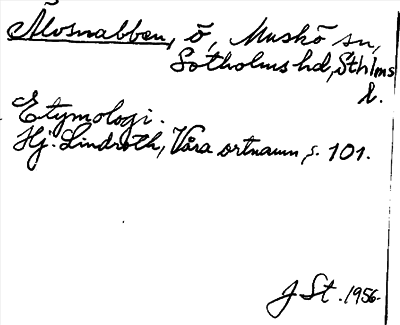 Älvsnabben, ö, Muskö sn,
Sotholms hd, Sthlms
l.
Etymologi.
Hj. Lindroth, Våra ortnamn, s. 101.
J St. 1956.